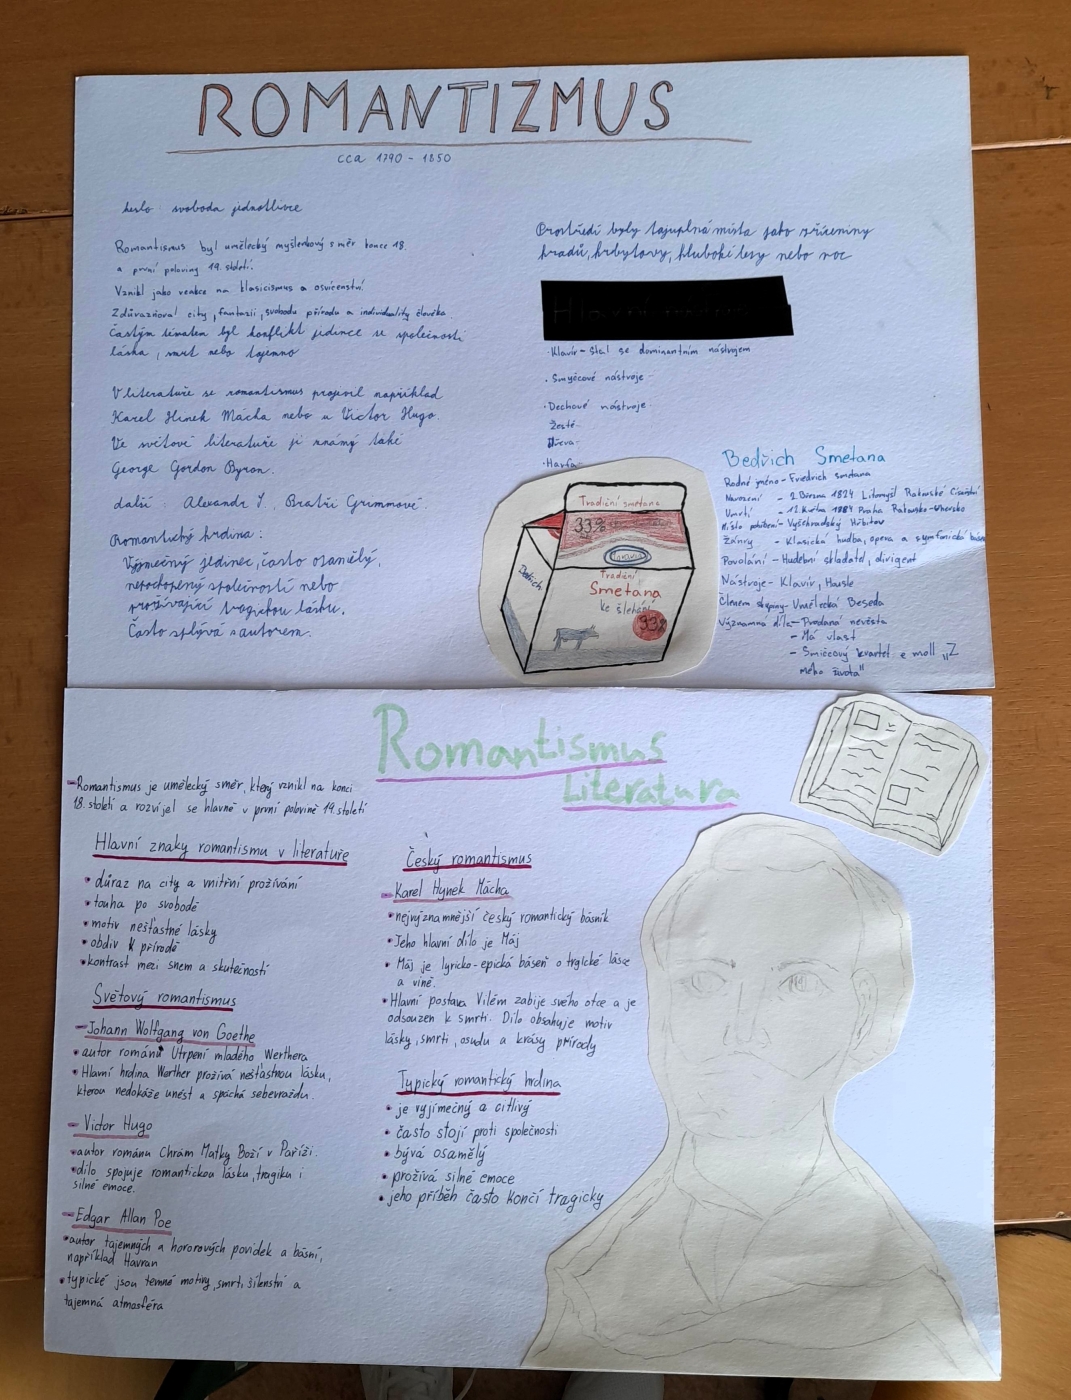 ROMANTIZMUS
cca 1790 - 1850
heslo: svoboda jednotlivce
Romantismus byl umělecký myšlenkový směr konce 18.
a první poloviny 19. století.
Vznikl jako reakce na klasicismus a osvícenství.
Zdůrazňoval city, fantazii, svobodu přírodu a individuality člověka.
Častým tématem byl konflikt jedince se společností
láska, smrt nebo tajemno
V literatuře se romantismus projevil například
Karel Hinek Mácha nebo u Victor Hugo.
Ve světové literatuře je známý také
George Gordon Byron.
další: Alexandr S, Bratři Grimmové.
Romantický hrdina:
Výjimečný jedinec, často osamělý,
nepochopený společností nebo
prožívající tragickou lásku.
Často splývá s autorem.
Prostředí byly tajuplná místa jako zříceniny
hradů, hřbytovy, hluboké lesy nebo noc
• Klavír - Stal se dominantním nástrojem
• Smyčcové nástroje -
• Dechové nástroje
Žestě
Dřeva-
• Harfa-
Tradiční smetana
33%
Moravia
Tradiční
Smetana
ke šlehání
33%
Bedřich Smetana
Rodné jméno - Friedrich smetana
Narození - 2. Března 1824 Litomyšl Rakouské Císařství
Úmrtí - 12. Května 1884 Praha Rakousko-Uhersko
Místo pohřbení - Vyšehradský Hřbitov
Žánry - Klasická hudba, opera a symfonická
Povolání - Hudební skladatel, dirigent
Nástroje - Klavír, Housle
Členem skupiny - Umělecká Beseda
Významná díla - Prodaná nevěsta
- Má vlast
- Smičcový kvartet e moll „Z
mého života"
Romantismus
Literatura
- Romantismus je umělecký směr, který vznikl na konci
18. století a rozvíjel se hlavně v první polovině 19. století
Hlavní znaky romantismu v literatuře
• důraz na city a vnitřní prožívání
• touha po svobodě
• motiv nešťastné lásky
• obdiv k přírodě
• kontrast mezi snem a skutečností
Světový romantismus
- Johann Wolfgang von Goethe
• autor románu Utrpení mladého Werthera
• Hlavní hrdina Werther prožívá nešťastnou lásku,
kterou nedokáže unést a spáchá sebevraždu.
- Victor Hugo
• autor románu Chrám Matky Boží v Paříži.
• dílo spojuje romantickou lásku, tragiku i
silné emoce.
- Edgar Allan Poe
• autor tajemných a hororových povídek a básní,
například Havran
• typické jsou temné motivy, smrti, šílenství a
tajemná atmosféra
Český romantismus
- Karel Hynek Mácha
• nejvýznamnější český romantický básník
• Jeho hlavní dílo je Máj
• Máj je lyricko-epická báseň o trgické lásce
a vině.
• Hlavní postava Vilém zabije svého otce a je
odsouzen k smrti. Dílo obsahuje motiv
lásky, smrti, osudu a krásy přírody
Typický romantický hrdina
• je vyjímečný a citlivý
• často stojí proti společnosti
• bývá osamělý
• prožívá silné emoce
• jeho příběh často končí tragicky